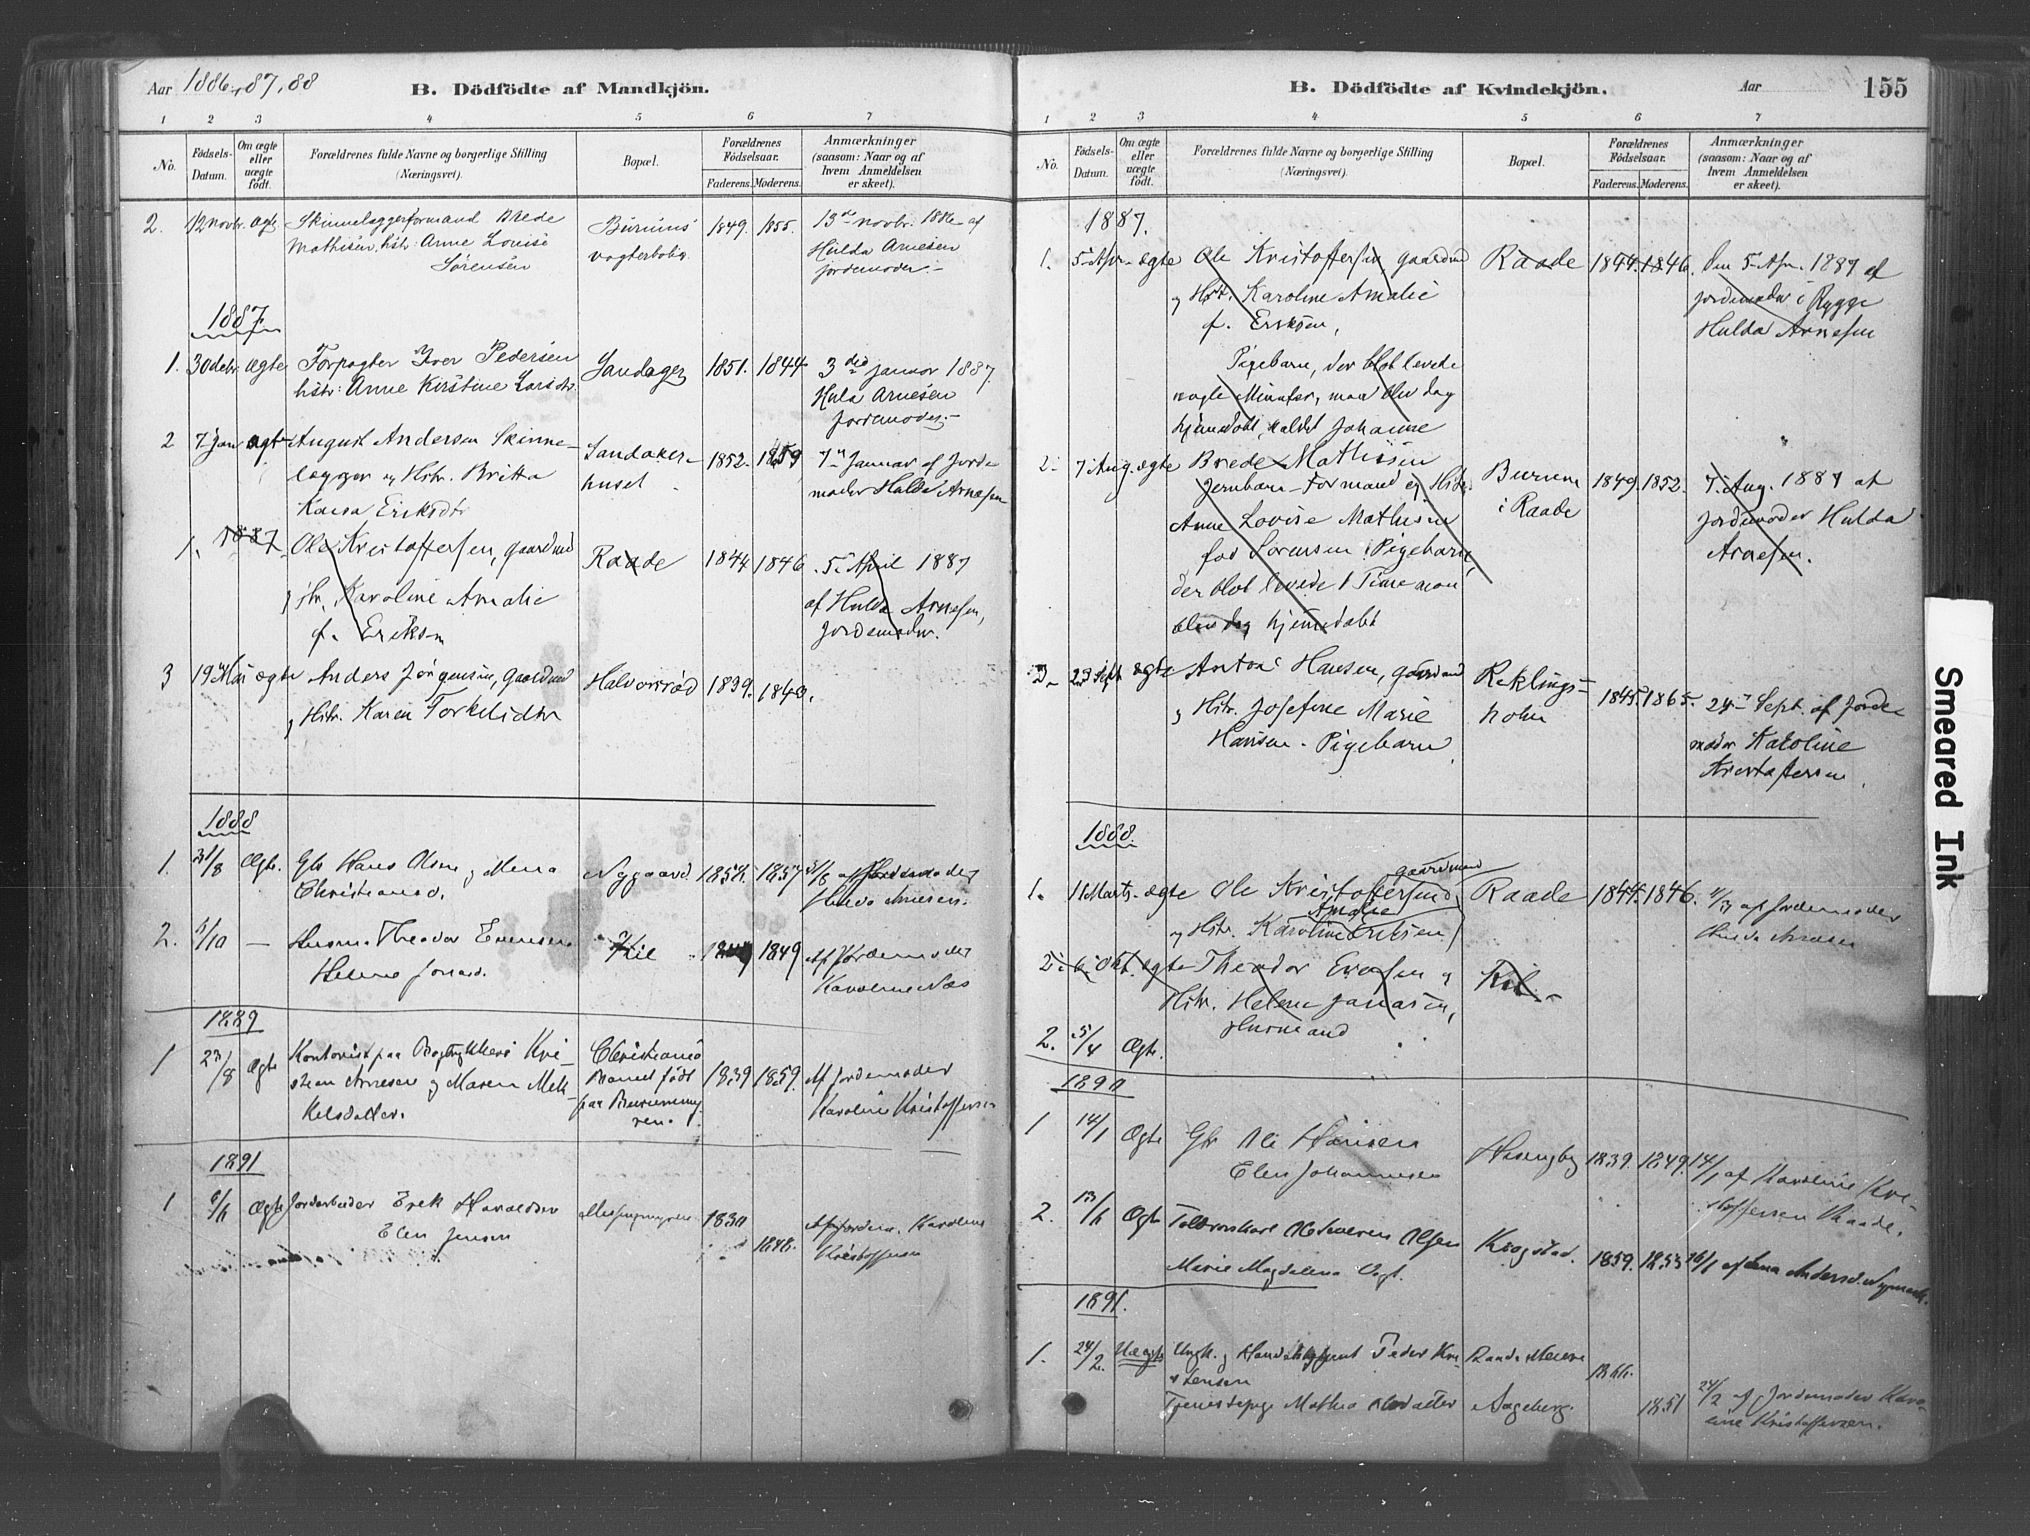 Aar 1886, 87, 88
B. Dödfödte af Mandkjön.
1 2 3 4 5 6 7
No.
Födsels-Datum.
Om ægte eller uægte födt.
Forældrenes fulde Navne og borgerlige Stilling
(Næringsvei).
Bopæl.
Forældrenes Födselsaar.
Faderens. Moderens.
Anmærkninger
(saasom: Naar og af
hvem Anmeldelsen
er skeet).
2. 12 novbr. ægte Skinnelæggerformand Brede 1849. 1855. 13de novbr. 1886 af
Mathisen, hstr: Anne Louise vagterbolig Hulda Arnesen
Sørensen jordemoder.-
1887
1. 30 debr. ægte Forpagter Iver Pedersen 1851. 1844 3die januar 1887.
hstr: Anne Kirstine Larsdtr. Hulda Arnesen
Jordemoder.-
2 7 Jan ægte August Andersen Skinne- Sandaker- 1852. 1859 7de Januar af Jorde
lægger og Hstr. Britta huset moder Hulda Arnesen
Kaisa Eriksdtr
1. 1887 Ole Kristoffersen, gaardmd Raade 1844 1846 5. April 1887
Karoline Amalie af Hulda Arnesen,
f. Eriksen Jordemoder.
3 19 Mai ægte Anders Jörgensen, Gaardmd Halvorsröd 1839. 1840.
og Hstr. Karen Torkelsdtr
1888
1. 31/8 Ægte. Gbr Hans Olsen og Mena Nygaard 1857 31/8 af Jordemoder
Christiansd. Hulda Arnesen.
2. 5/10 — Husmd Theodor Evensen Kil 1849 Af Jordemoder
Helene Jonasd. Karoline Næs
1889
1 23/8 Ægte Kontorist paa Bogtrykkeri Kri- Christiania 1839 1859. Af Jordemoder
stian Arnesen og Maren Mik- Barnet födt Karoline Kristoffersen
kelsdatter. paa
1891
1 6/11 Ægte Jordarbeider Erik Haraldsen 1830 Af Jordem. Karoline
Elen Jensen 1848. Kristoffersen
B. Dödfödte af Kvindekjön.
Aar
155
1 2 3 4 5 6 7
No.
Födsels-Datum.
Om ægte eller uægte födt.
Forældrenes fulde Navne og borgerlige Stilling
(Næringsvei).
Bopæl.
Forældrenes Födselsaar.
Faderens. Moderens.
Anmærkninger
(saasom: Naar og af
hvem Anmeldelsen
er skeet).
1887.
1. 5 Apr. ægte Ole Kristoffersen gaardmd Raade 1844. 1846. Den 5 Apr. 1887 af
og Hstr. Karoline Amalie jordemoder i Rygge
f. Eriksen, Hulda Arnesen
Pigebarn, der blot levede
nogle Minuter, man blev dog
hjemdöbt, kaldet Johanne
2. 7 Aug. ægte Brede Mathisen 1849. 1852. 7. Aug. 1887 af
Jernbane-Formand og Hstr. i Raade jordemoder Hulda
Anne Lovise Mathisen Arnesen.
Sörensen, Pigebarn
der blot levede 1 Time men
blev dog hjemmedöbt
3- 23 Sept ægte Anton Hansen, gaardmd Reklings- 1845. 1865. 24de Sept. af Jorde
og Hstr. Josefine Marie holm moder Karoline
Hansen - Pigebarn. Kristoffersen
1888.
gaardmand
1. 11 Marts. ægte Ole Kristoffersen Raade 1844. 1846. 11/3 af Jordemoder
Amalie
og Hstr. Karoline Eriksen Hulda Arnesen
2. 6. Okt. ægte Theodor Evensen og Kil.-
Hstr. Helene Jonasen,
Husmand
2. 5/4 Ægte.
1890
1 14/1 Ægte Gbr Ole Hansen 1839. 1849. 14/1 af Karoline Kri-
Elen Johannesen stoffersen Raade.
2. 13/1 Ægte Olsen Krogstad. 1859. 1853 16/1 af Andersd.
Marie Magdalena Vogt.
1891.
1. 24/2. Uægte Ungk. og Peder Kri-
stensen
Tjenestepige 1851 24/2 af Jordemoder Karo-
line Kristoffersen.
Smeared Ink